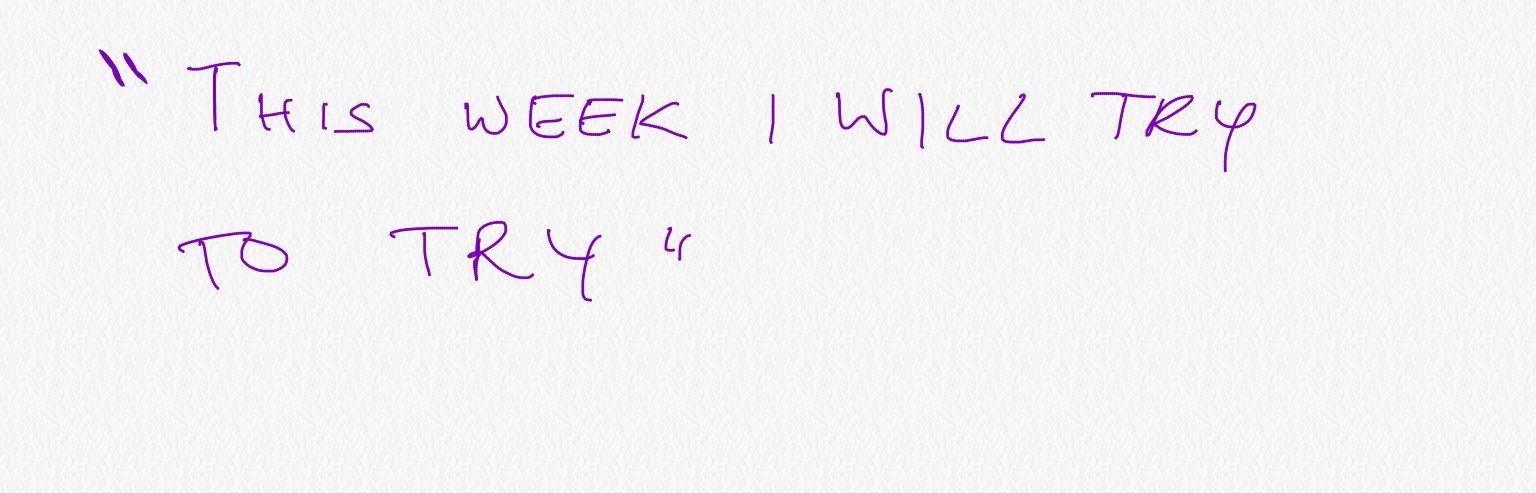 "THIS WEEK I WILL TRY
TO TRY"